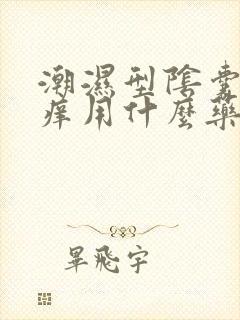 潮濕型陰囊
痒用什麼藥
畢飛宇